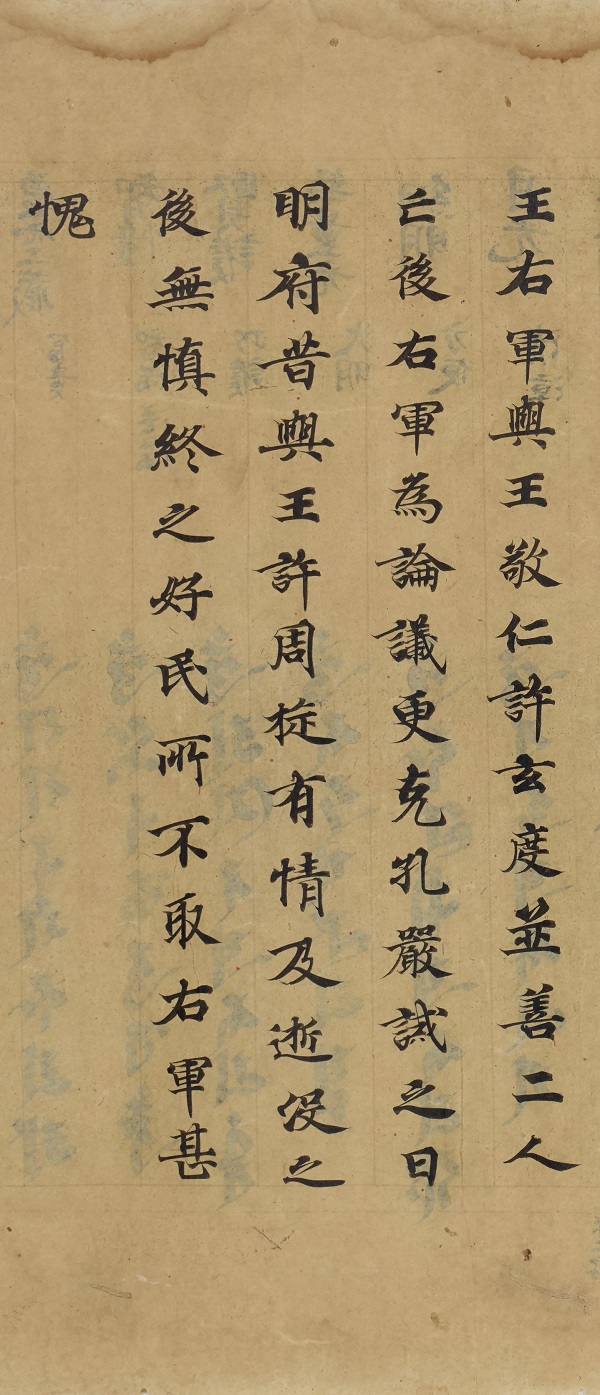 王右軍與王敬仁許玄度並善二人
亡後右軍為論議更克孔嚴誡之曰
明府昔與王許周旋有情及逝没之
後無慎終之好民所不取右軍甚
愧